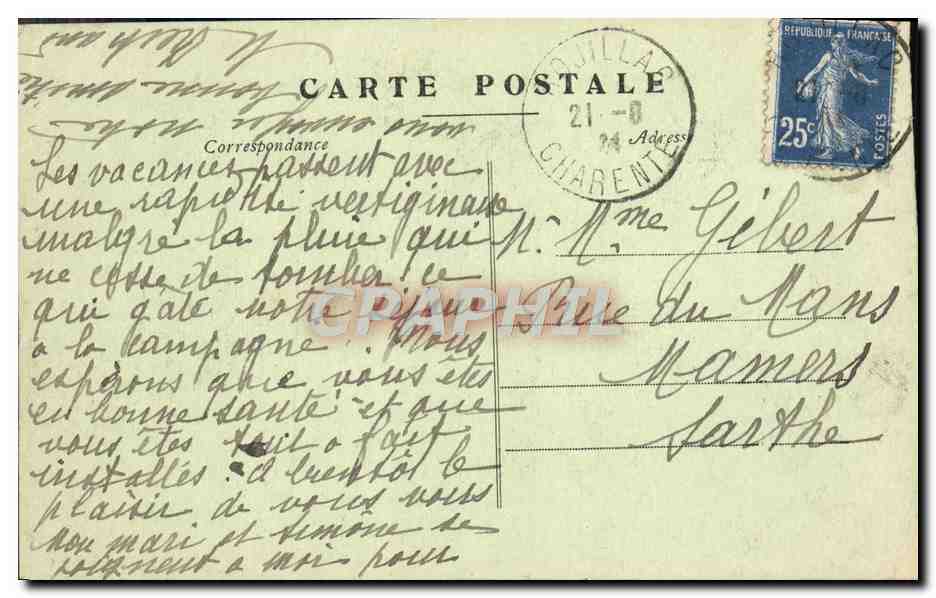 CARTE POSTALE
Correspondance
Adresse
REPUBLIQUE FRANCAISE
25c
POSTES
ROUILLAC
21 -8
24
CHARENTE
CPAPHIL
Les vacances passent avec
une rapidité vertigineuse
malgré la pluie qui
ne cesse de tomber ce
qui gâte notre séjour
à la campagne. Nous
espérons que vous êtes
en bonne santé et que
vous êtes tout à fait
installés. A bientôt le
plaisir de vous vous
Mon mari et Simone se
joignent à moi pour
vous envoyer notre
bonne amitié
M.
M. Mme Gébert
Rue du Mans
Mamers
Sarthe